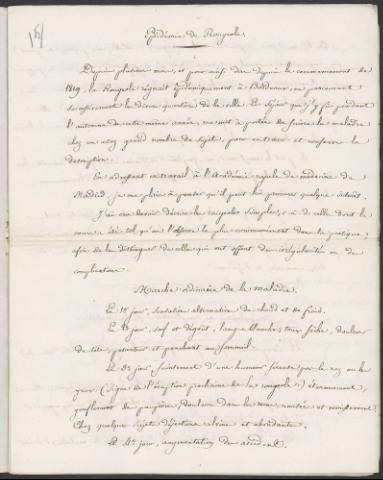 (5)
Epidémie de Rougeole.
Depuis plusieurs mois, et pour ainsi dire depuis le commencement de
1819, la Rougeole régnait épidémiquement à Bordeaux, en parcourant
successivement les divers quartiers de la ville. Le séjour que j'y fis pendant
l'automne de cette même année, me mit à portée de suivre la maladie
chez un assez grand nombre de sujets, pour en tracer et la
description.
En adressant ce travail à l'Académie royale de médecine de
Madrid, je me plais à penser qu'il peut lui procurer quelque intérêt.
J'ai cru devoir décrire la rougeole simple, c. à. d. celle dont le
cours a lieu tel qu'on l'observe le plus communément dans la pratique,
afin de la distinguer de celles qui ont offert des irrégularités ou des
complications.
Marche ordinaire de la maladie.
Le 1er jour, sensation alternative de chaud et de froid.
Le 2e jour, soif et dégoût, langue blanche, toux sèche, douleur
de tête, pesanteur et penchant au sommeil.
Le 3e jour, suintement d'une humeur séreuse par le nez ou les
yeux, (signe de l'éruption prochaine de la rougeole), éternuement,
gonflement des paupières, douleurs dans les reins, nausées et vomissement.
Chez quelques sujets déjections alvines et abondantes.
Le 4e jour, augmentation des accidents.